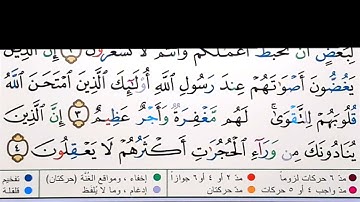 لِبَعْضٍ أَن تَحْبَطَ أَعْمَٰلُكُمْ وَأَنتُمْ لَا تَشْعُرُونَ ٢ إِنَّ ٱلَّذِينَ
يَغُضُّونَ أَصْوَٰتَهُمْ عِندَ رَسُولِ ٱللَّهِ أُو۟لَٰٓئِكَ ٱلَّذِينَ ٱمْتَحَنَ ٱللَّهُ
قُلُوبَهُمْ لِلتَّقْوَىٰ ۚ لَهُم مَّغْفِرَةٌ وَأَجْرٌ عَظِيمٌ ٣ إِنَّ ٱلَّذِينَ
يُنَادُونَكَ مِن وَرَآءِ ٱلْحُجُرَٰتِ أَكْثَرُهُمْ لَا يَعْقِلُونَ ٤
مدّ ٦ حركات لزوماً مدّ ٢ أو ٤ أو ٦ جوازاً إخفاء، ومواقع الغُنَّة (حركتان) تفخيم
مدّ واجب ٤ أو ٥ حركات مدّ حركتان إدغام، وما لا يُلفَظ قلقلة